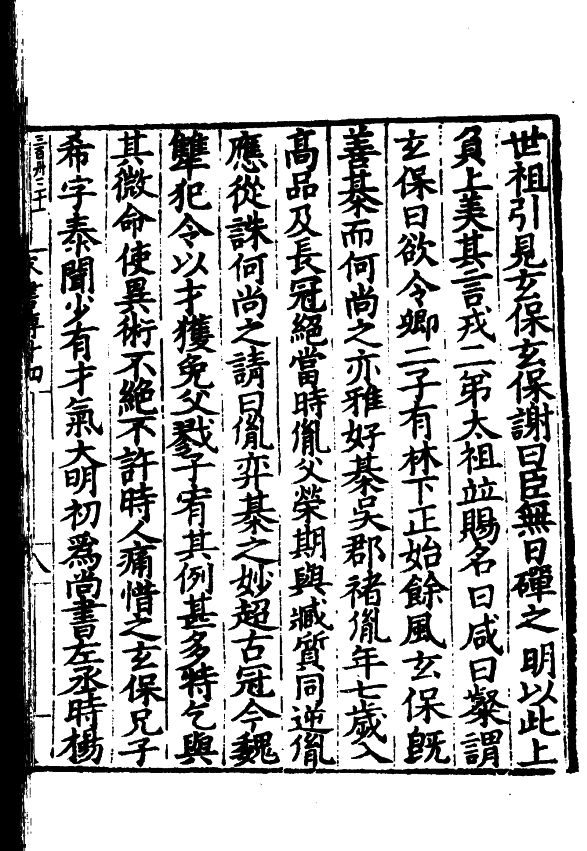 世祖引見玄保玄保謝曰臣無日磾之明以此上
負上美其言戎二弟太祖竝賜名曰咸曰粲謂
玄保曰欲令卿二子有林下正始餘風玄保旣
善棊而何尚之亦雅好棊吳郡褚胤年七歲入
高品及長冠絕當時胤父榮期與臧質同逆胤
應從誅何尚之請曰胤弈棊之妙超古冠今魏
犨犯令以才獲免父戮子宥其例甚多特乞與
其微命使異術不絕不許時人痛惜之玄保兄子
希字泰聞少有才氣大明初爲尚書左丞時楊
八